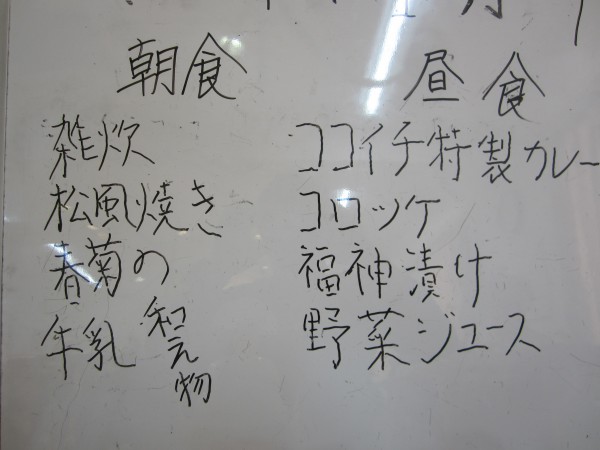 朝食
雑炊
松風焼き
春菊の
和え物
牛乳
昼食
ココイチ特製カレー
コロッケ
福神漬け
野菜ジュース